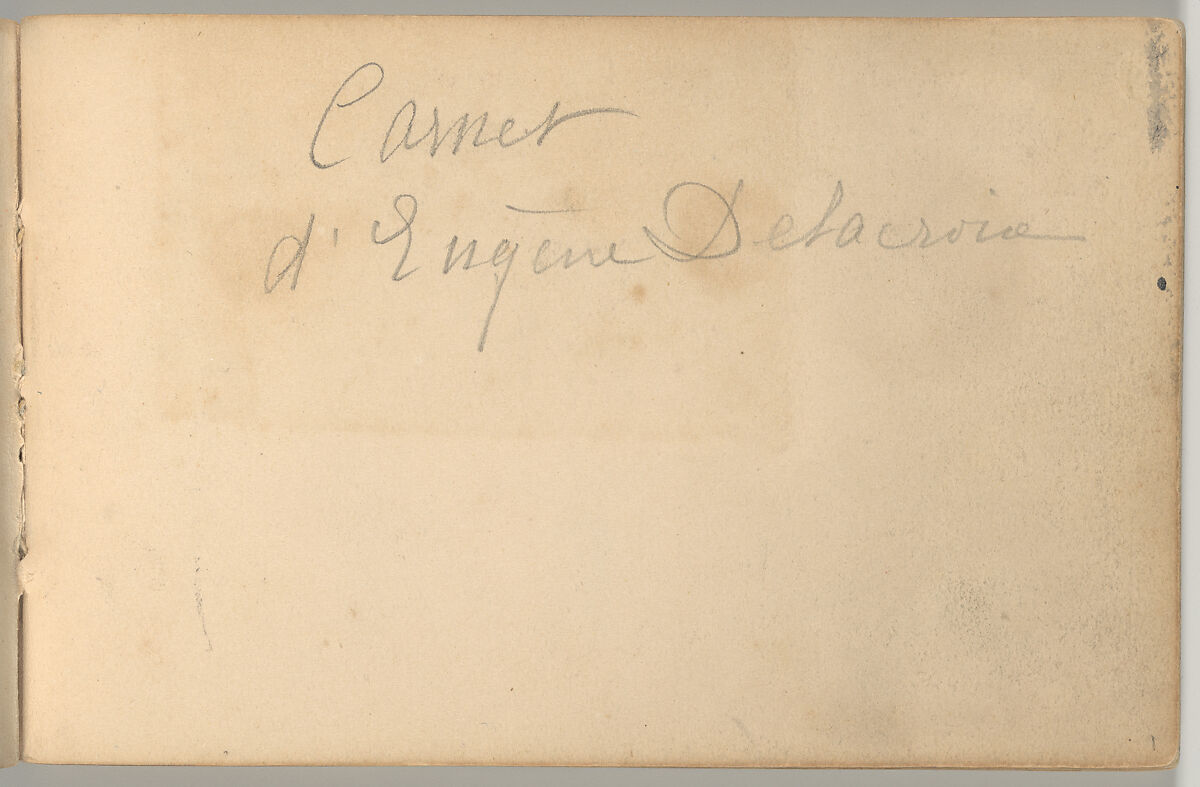 Carnet
d'Eugène Delacroix